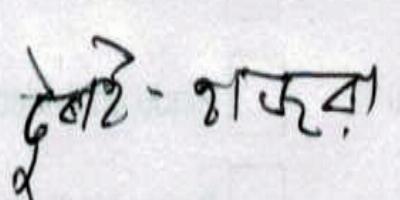 দুলাই - হাজরা